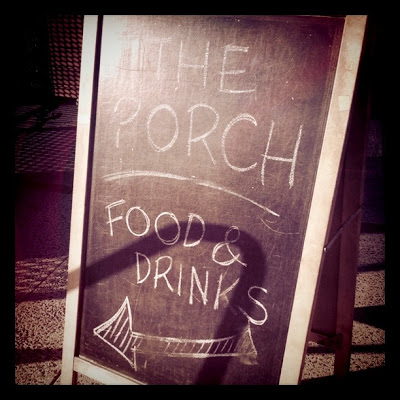 THE
PORCH
FOOD &
DRINKS